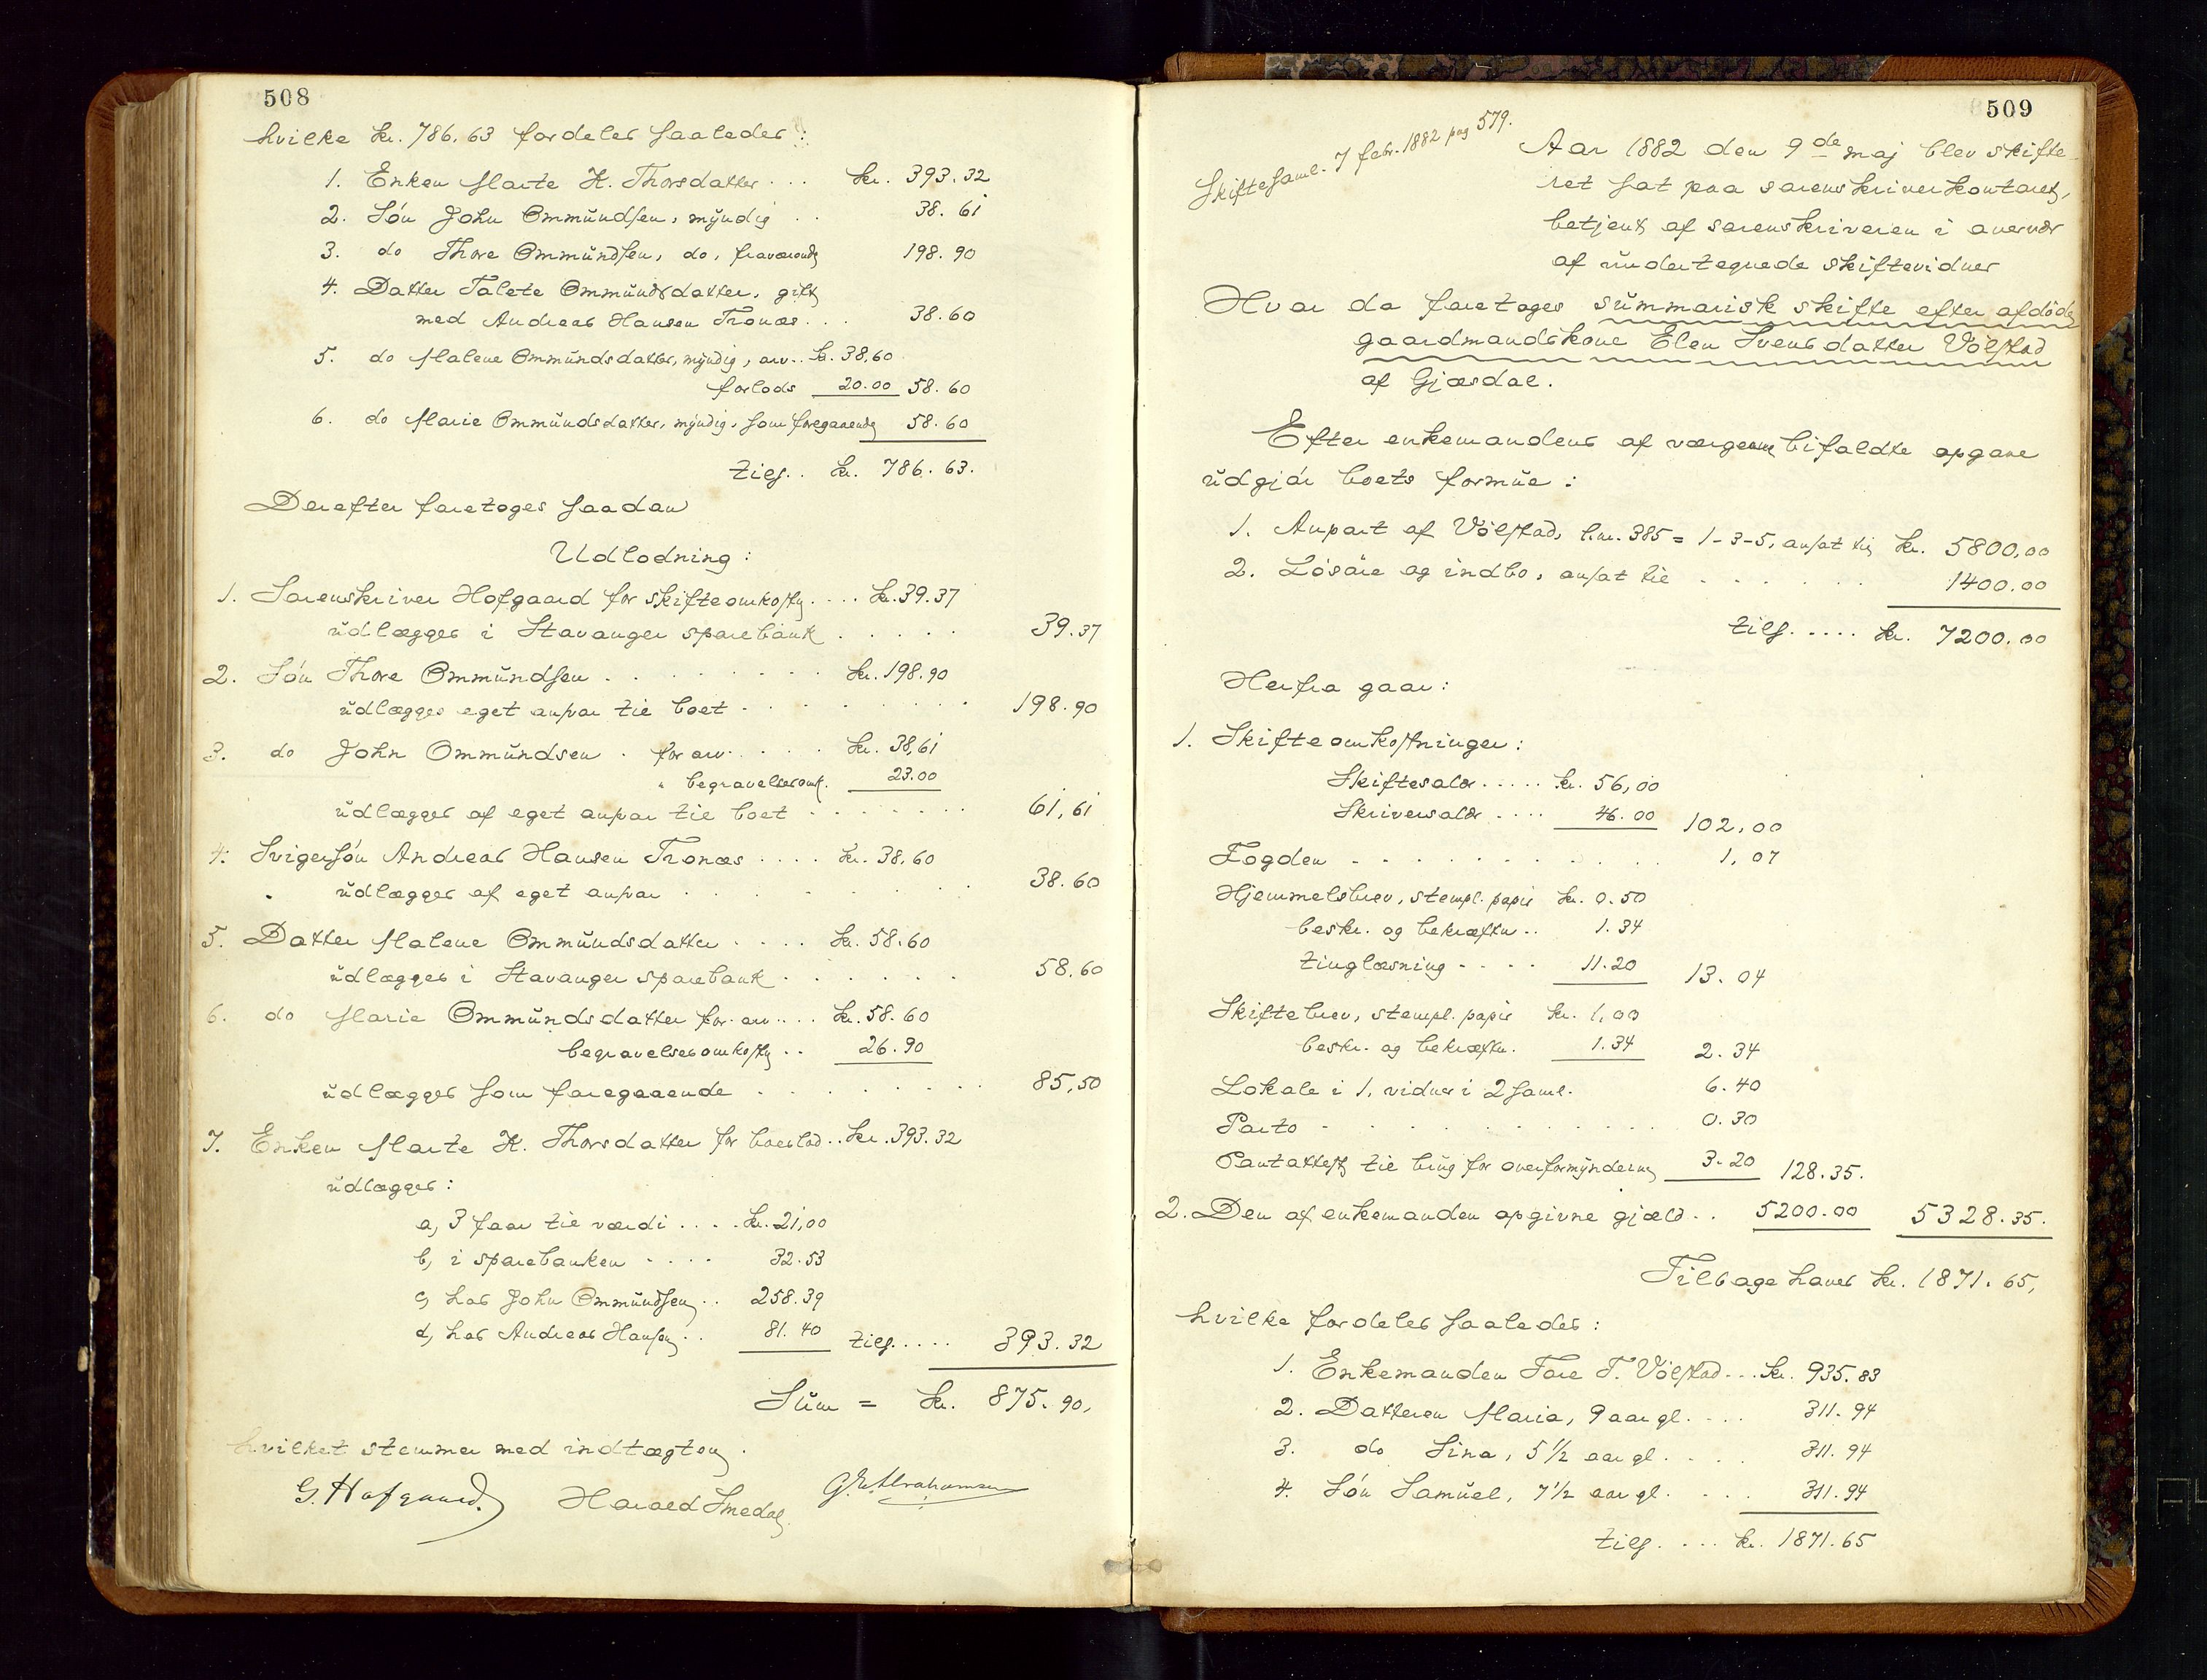 508
hvilke kr. 786.63 fordeles saaledes:
1. Enken Marte K. Thorsdatter ... kr. 393.32
2. Søn John Ommundsen, myndig .. 38.61
3. do Thore Ommundsen, do, fraværende 198.90
4. Datter Talete Ommundsdatter, gift
med Andreas Hansen Tronæs ... 38.60
5. do Malene Ommundsdatter, myndig, arv.. kr. 38,60
forlods 20.00 58.60
6. do Marie Ommundsdatter, myndig, som foregaaende 58.60
tils.. kr. 786.63.
Derefter foretoges saadan
Udlodning:
1. Sorenskriver Hofgaard for skifteomkostn. .... kr. 39.37
udlægges i Stavanger sparebank ..... 39.37
2. Søn Thore Ommundsen ........ kr. 198.90
udlægges eget ansvar til boet ........ 198.90
3. do John Ommundsen . for arv .... kr. 38,61
" begravelsesomk. 23.00
udlægges af eget ansvar til boet ...... 61,61
4. Svigersøn Andreas Hansen Tronæs .... kr. 38.60
udlægges af eget ansvar ....... 38.60
5. Datter Malene Ommundsdatter .... kr. 58.60
udlægges i Stavanger sparebank ...... 58.60
6. do Marie Ommundsdatter for arv .... kr. 58.60
begravelsesomkostn .. 26.90
udlægges som foregaaende ...... 85,50
7. Enken Marte K. Thorsdatter for boeslod .. kr. 393.32
udlægges:
a, 3 faar til værdi .... kr. 21,00
b, i sparebanken .... 32.53
c, hos John Ommundsen .. 258.39
d, hos Andreas Hansen .. 81.40 tils..... 393.32
Sum = kr. 875.90,
hvilket stemmer med indtægten.
G. Hofgaard. Harald Smedal G. E. Abrahamsen
509
Skiftesaml. 7 febr. 1882 pag 579.
Aar 1882 den 9de maj blev skifte-
ret sat paa sorenskriverkontoret,
betjent af sorenskriveren i overvær
af undertegnede skiftevidner
Hvor da foretoges summarisk skifte efter afdøde
gaardmandskone Elen Svensdatter Vølstad
af Gjæsdal.
Efter enkemandens af værgerne bifaldte opgave
udgjør boets formue:
1. Anpart af Vølstad, l.nr. 385 = 1-3-5, ansat til kr. 5800,00
2. Løsøre og indbo, ansat til ...... 1400.00
tils..... kr. 7200.00
Herfra gaar:
1. Skifteomkostninger:
Skiftesalær ..... kr. 56,00
Skriversalær .... 46.00 102,00
Fogden .......... 1,07
Hjemmelsbrev, stempl. papir kr. 0.50
beskr. og bekræftn .. 1.34
tinglæsning .... 11.20 13.04
Skiftebrev, stempl. papir kr. 1,00
beskr. og bekræftn. 1.34 2.34
Lokale i 1, vidner i 2 saml. 6.40
Porto .......... 0.30
Pantattest til brug for overformynderne 3.20 128.35.
2. Den af enkemanden opgivne gjæld .. 5200.00 5328.35.
Tilbage haves kr. 1871.65,
hvilke fordeles saaledes:
1. Enkemanden Tore T. Vølstad ... kr. 935.83
2. Datteren Maria, 9 aar gl. ... 311.94
3. do Sina, 5 1/2 aar gl. .... 311.94
4. Søn Samuel, 7 1/2 aar gl. ... 311.94
tils. ... kr. 1871.65